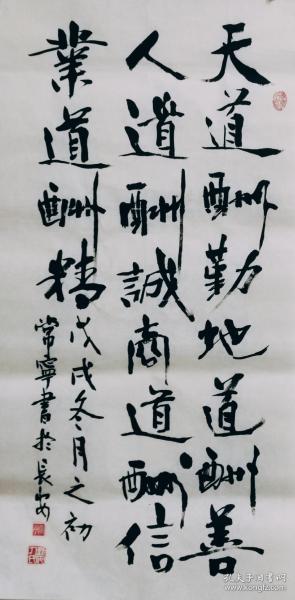 天道酬勤地道酬善
人道酬誠商道酬信
業道酬精
戊戌冬月之初
常寧書於長安
孔夫子旧书网